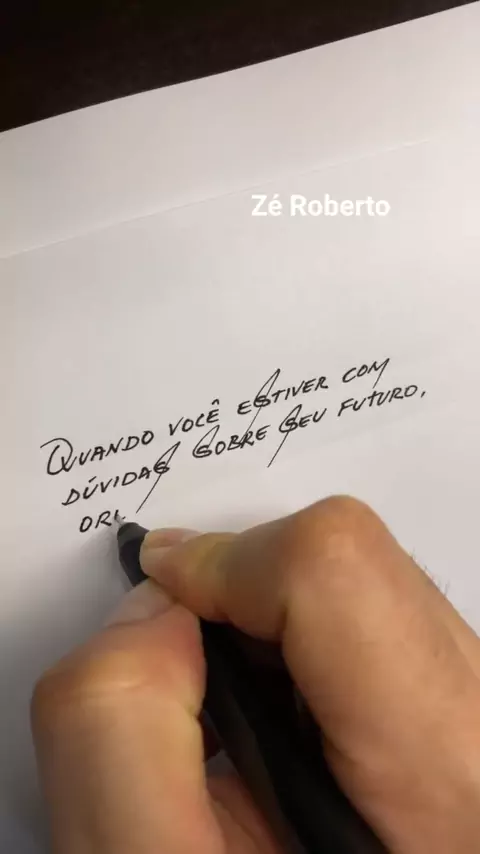 Zé Roberto
QUANDO VOCÊ ESTIVER COM
DÚVIDAS SOBRE SEU FUTURO,